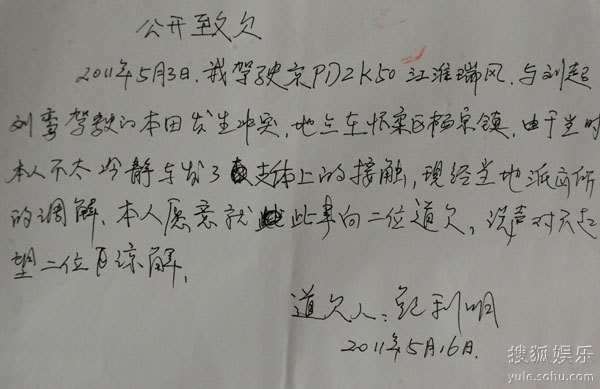 公开致欠
2011年5月3日.我驾驶京PD2K50江淮瑞风.与刘超
刘鸾驾驶的本田发生冲突,地点在怀柔区杨宋镇,由于当时
本人不太冷静车发了支体上的接触,现经当地派出所
的调解、本人愿意就此事向二位道欠,说声对不起
望二位 谅解,
道欠人:纪利明
2011年5月16日.
搜狐娱乐
yule.sohu.com